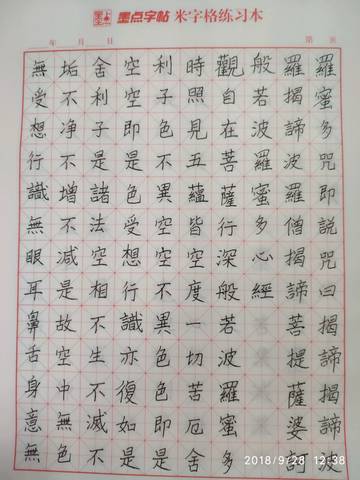 墨点字帖 米字格练习本
年 月 日 第 页
羅蜜多咒即說咒曰揭諦揭諦波
羅揭諦波羅僧揭諦菩提薩婆訶
般若波羅蜜多心經
觀自在菩薩行深般若波羅蜜多
時照見五蘊皆空度一切苦厄舍
利子色不異空空不異色色即是
空空即是色受想行識亦復如是
舍利子是諸法空相不生不滅不
垢不净不增不減是故空中無色
無受想行識無眼耳鼻舌身意無
2018/9/28 12:38